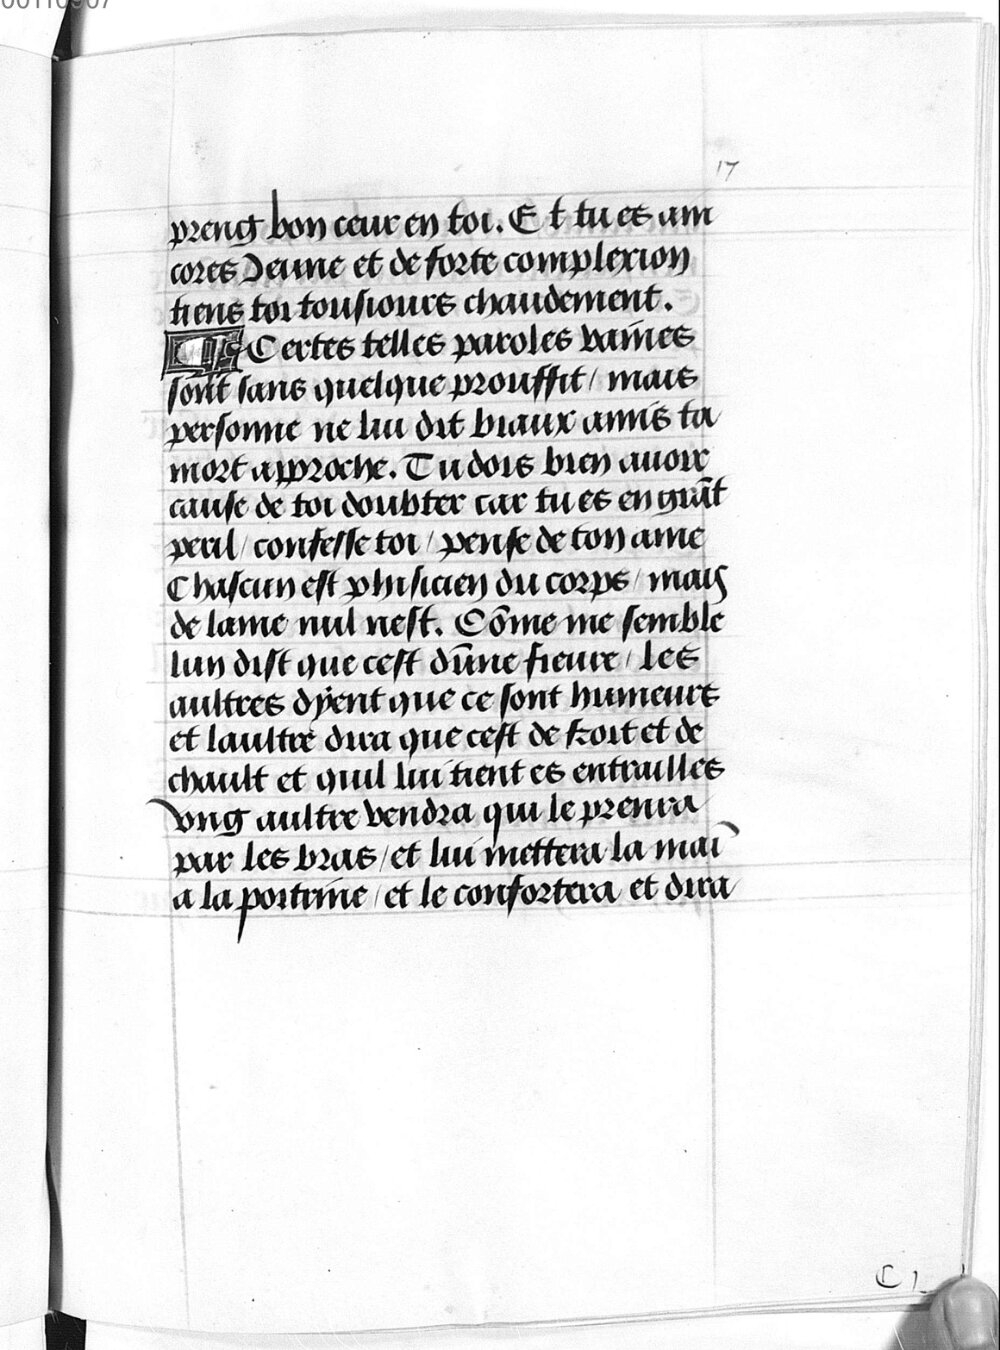 00110907
17
preng bon ceur en toi. Et tu es am
cores Jeune et de forte complexion
tiens toi tousiours chaudement.
¶ Certes telles paroles vaines
sont sans quelque prouffit / mais
personne ne lui dit biaux amis ta
mort approche. Tu dois bien auoir
cause de toi doubter car tu es en grãt
peril / confesse toi / pense de ton ame
Chascun est phisicien du corps / mais
de lame nul nest. Cõme me semble
lun dist que cest dũne fieure / les
aultres dÿent que ce sont humeurs
et laultre dira que cest de froit et de
chault et quil lui tient es entrailles
vng aultre vendra qui le prenra
par les bras / et lui mettera la maĩ
a la poitrine / et le confortera et dira
C 1